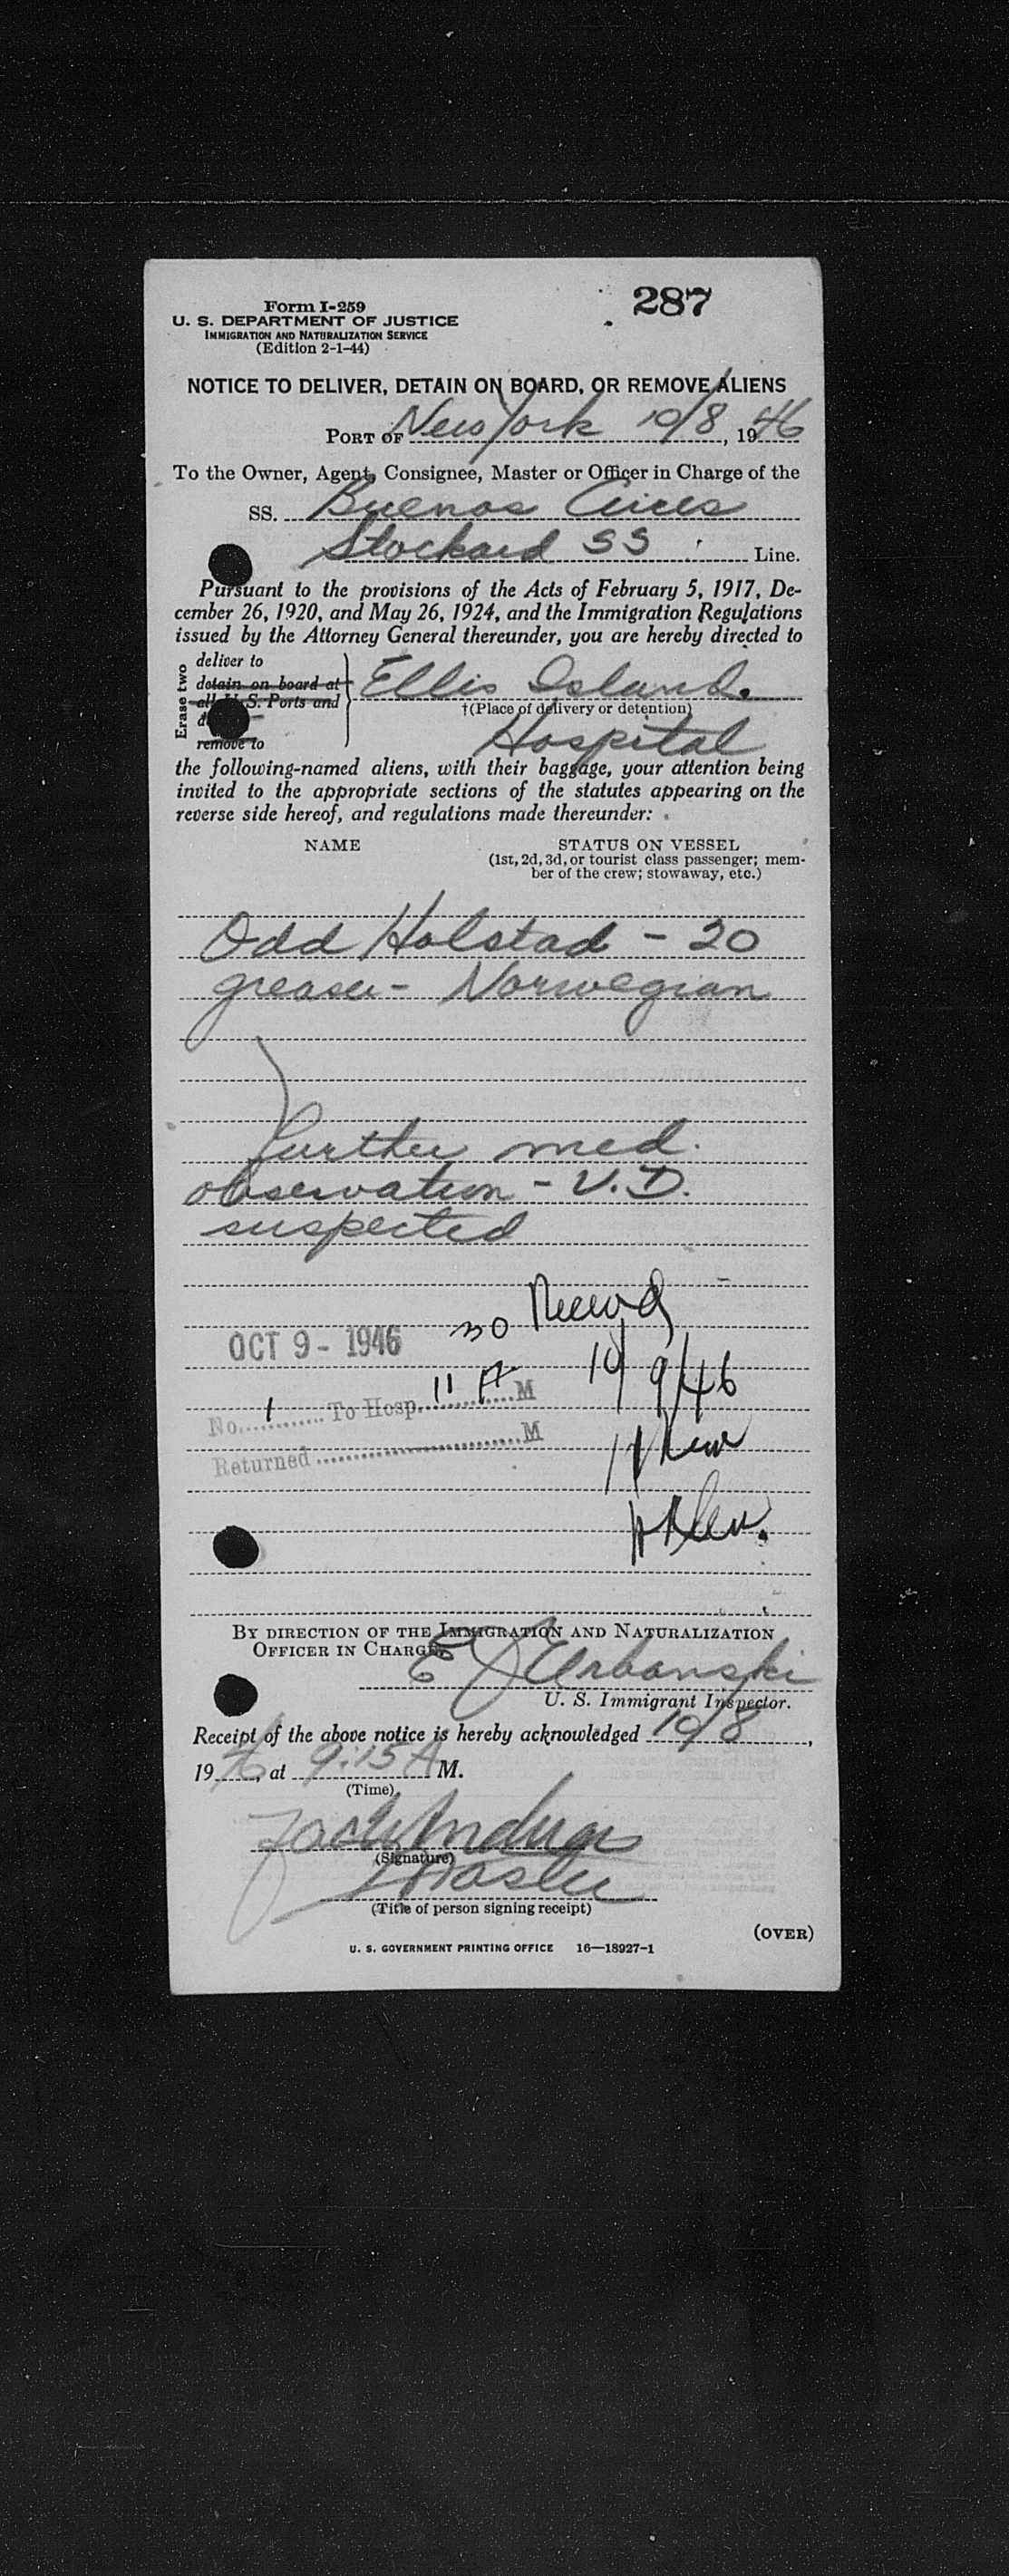 Form I-259
287
U. S. DEPARTMENT OF JUSTICE
IMMIGRATION AND NATURALIZATION SERVICE
(Edition 2-1-44)
NOTICE TO DELIVER, DETAIN ON BOARD, OR REMOVE ALIENS
PORT OF New York 10/8, 1946
To the Owner, Agent, Consignee, Master or Officer in Charge of the
SS. Buenos Aires
Stockard SS Line.
Pursuant to the provisions of the Acts of February 5, 1917, De-
cember 26, 1920, and May 26, 1924, and the Immigration Regulations
issued by the Attorney General thereunder, you are hereby directed to
Erase two
deliver to
detain on board at
all U. S. Ports and
remove to
Ellis Island.
†(Place of delivery or detention)
Hospital
the following-named aliens, with their baggage, your attention being
invited to the appropriate sections of the statutes appearing on the
reverse side hereof, and regulations made thereunder:
NAME STATUS ON VESSEL
(1st, 2d, 3d, or tourist class passenger; mem-
ber of the crew; stowaway, etc.)
Odd Holstad - 20
greaser - Norwegian
further med.
observation - V.D.
suspected
OCT 9 - 1946
10/9/46
No. 1 To Hosp. 11 A M
Returned M
BY DIRECTION OF THE IMMIGRATION AND NATURALIZATION
OFFICER IN CHARGE
E J Urbanski
U. S. Immigrant Inspector.
Receipt of the above notice is hereby acknowledged 10/8,
1946, at 9:15 A M.
(Time)
(Signature)
Master
(Title of person signing receipt)
(OVER)
U. S. GOVERNMENT PRINTING OFFICE 16—18927-1